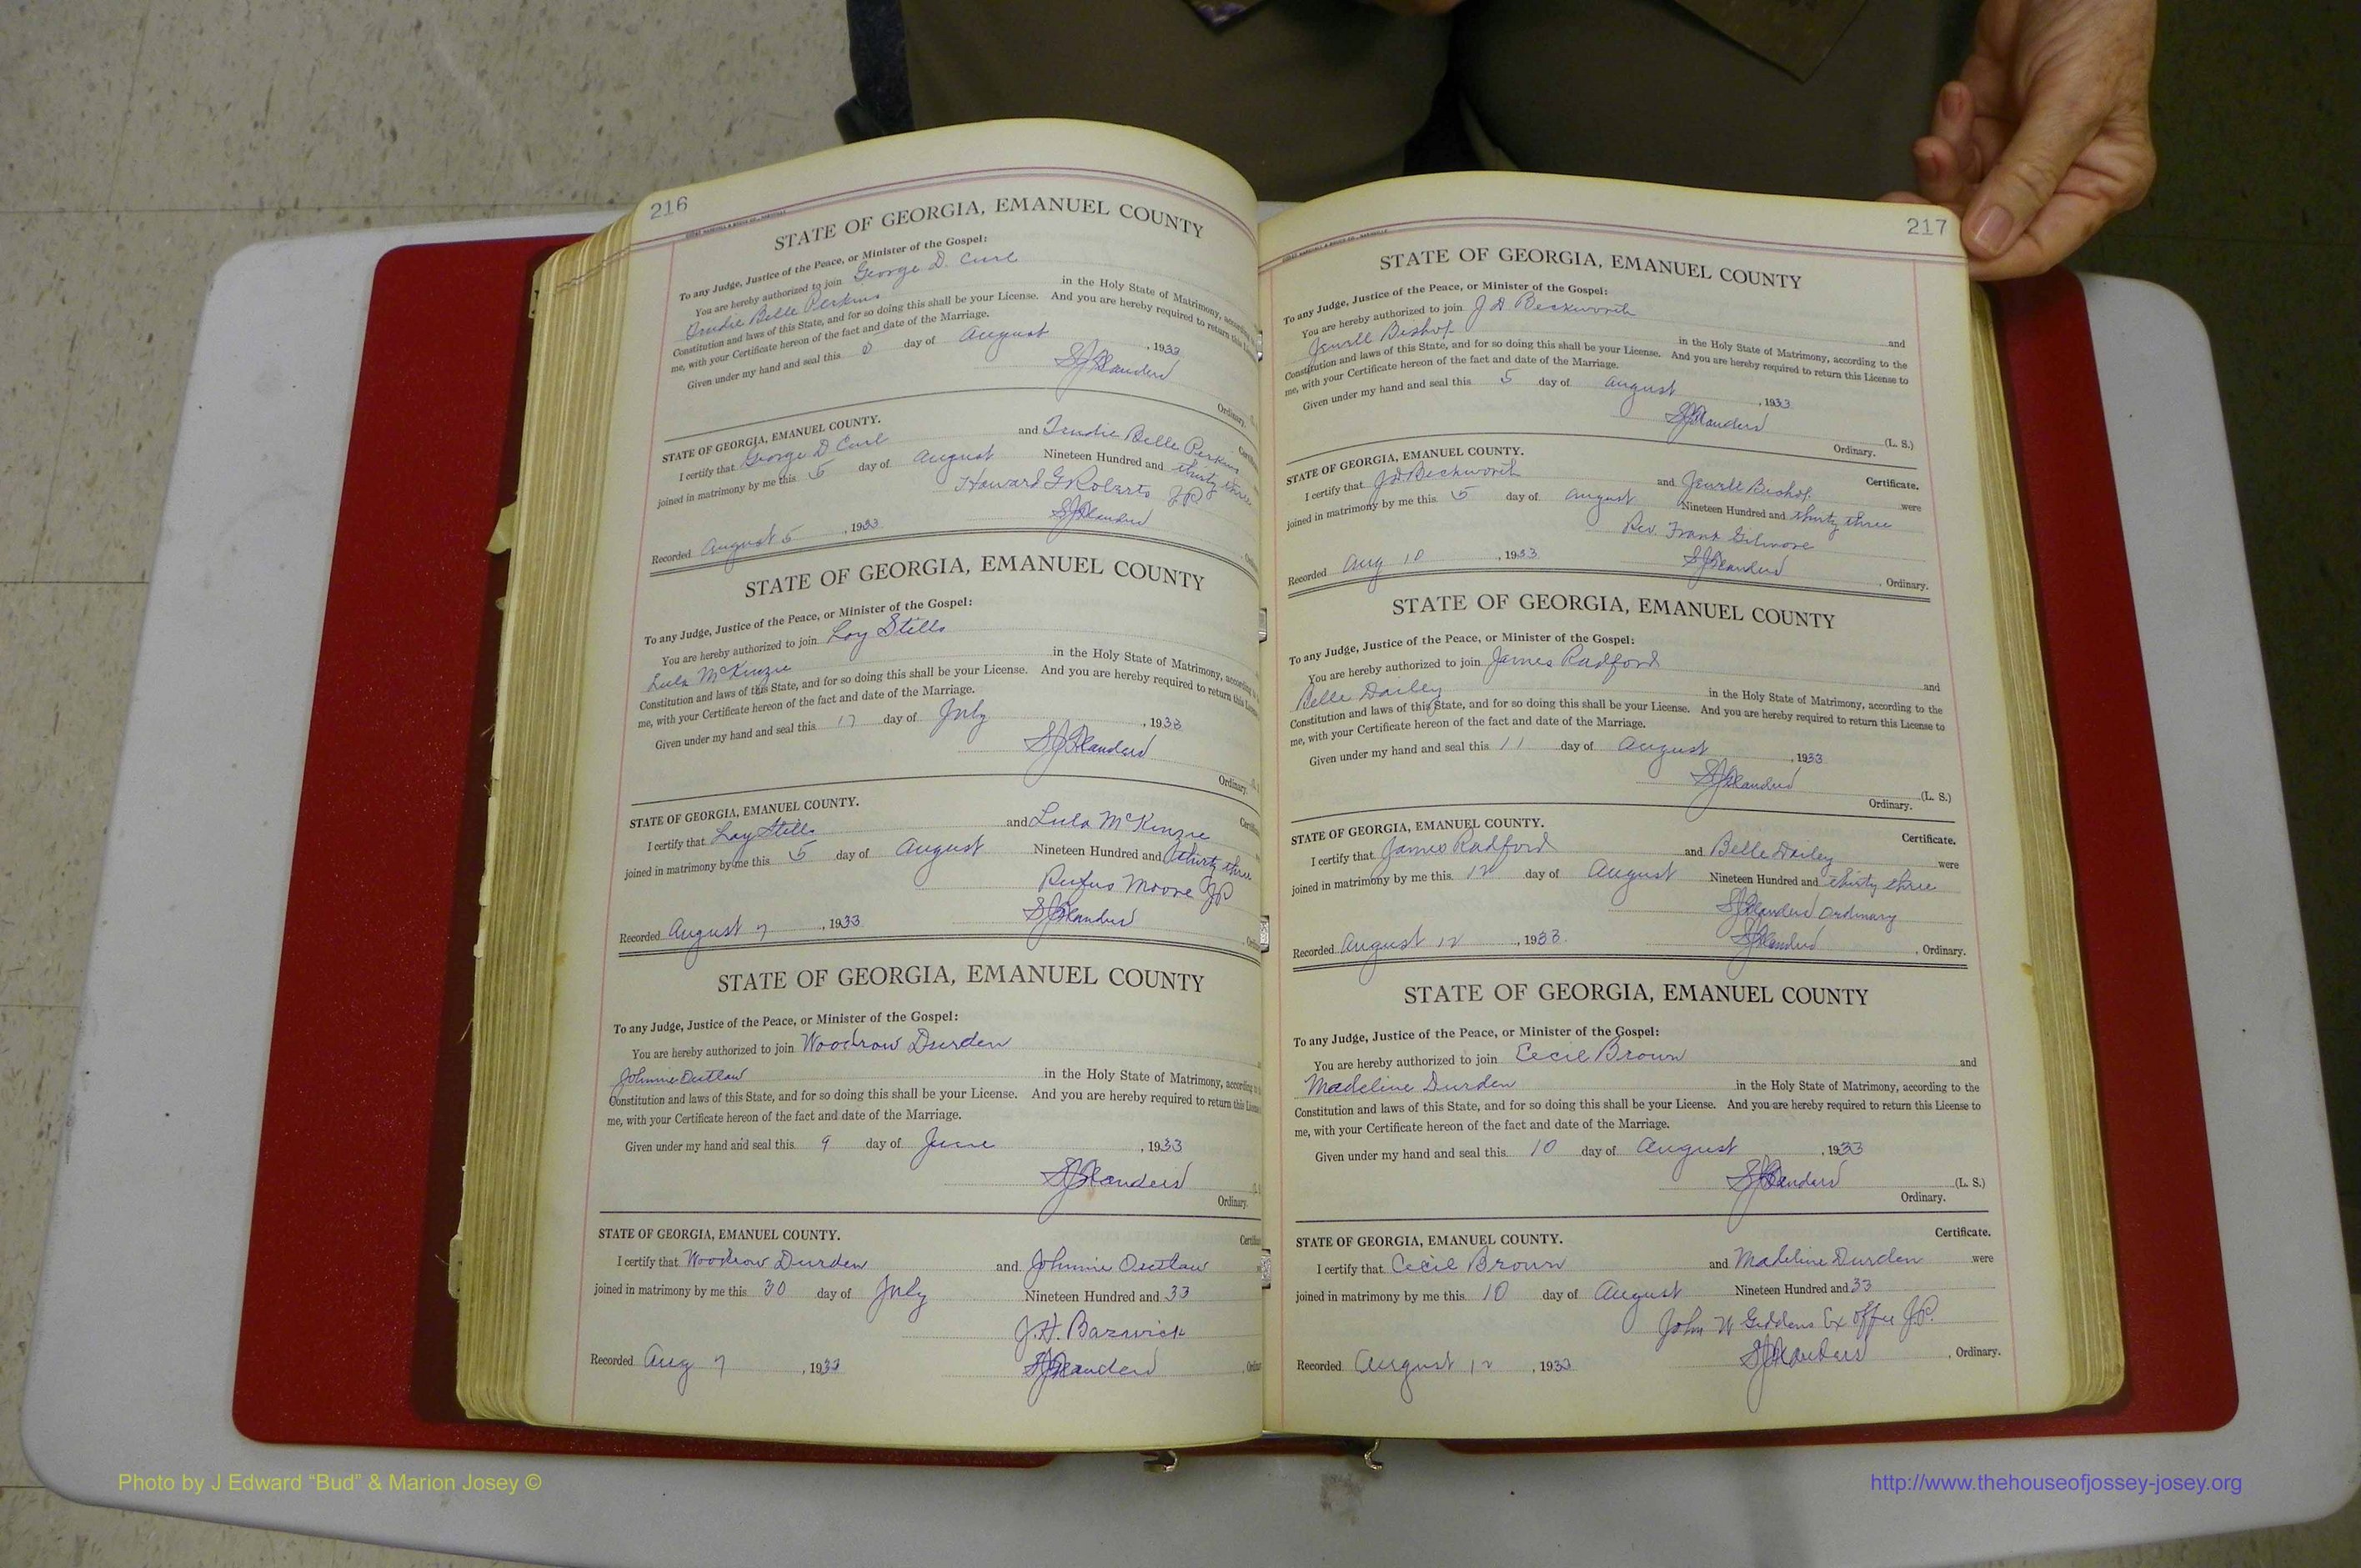 216
STATE OF GEORGIA, EMANUEL COUNTY
To any Judge, Justice of the Peace, or Minister of the Gospel:
You are hereby authorized to join George D. Curl
Trudie Belle Perkins in the Holy State of Matrimony, according
Constitution and laws of this State, and for so doing this shall be your License. And you are hereby required to return this
me, with your Certificate hereon of the fact and date of the Marriage.
Given under my hand and seal this day of August, 1933
Ordinary.
STATE OF GEORGIA, EMANUEL COUNTY.
I certify that George D Curl and Trudie Belle Perkins
joined in matrimony by me this 5 day of August Nineteen Hundred and thirty three
Howard G Roberts JP
Recorded August 5, 1933
STATE OF GEORGIA, EMANUEL COUNTY
To any Judge, Justice of the Peace, or Minister of the Gospel:
You are hereby authorized to join Loy Stills
Lula McKinzie in the Holy State of Matrimony, according
Constitution and laws of this State, and for so doing this shall be your License. And you are hereby required to return this
me, with your Certificate hereon of the fact and date of the Marriage.
Given under my hand and seal this 17 day of July, 1933
Ordinary.
STATE OF GEORGIA, EMANUEL COUNTY.
I certify that Loy Stills and Lula McKinzie
joined in matrimony by me this 5 day of August Nineteen Hundred and thirty three
Rufus Moore JP
Recorded August 7, 1933
STATE OF GEORGIA, EMANUEL COUNTY
To any Judge, Justice of the Peace, or Minister of the Gospel:
You are hereby authorized to join Woodrow Durden
Johnnie Outlaw in the Holy State of Matrimony, according
Constitution and laws of this State, and for so doing this shall be your License. And you are hereby required to return this
me, with your Certificate hereon of the fact and date of the Marriage.
Given under my hand and seal this 9 day of June, 1933
Ordinary.
STATE OF GEORGIA, EMANUEL COUNTY.
I certify that Woodrow Durden and Johnnie Outlaw
joined in matrimony by me this 30 day of July Nineteen Hundred and 33
J.H. Barwick
Recorded Aug 7, 1933
217
STATE OF GEORGIA, EMANUEL COUNTY
To any Judge, Justice of the Peace, or Minister of the Gospel:
You are hereby authorized to join J D Beckworth and
Jewell Bishop in the Holy State of Matrimony, according to the
Constitution and laws of this State, and for so doing this shall be your License. And you are hereby required to return this License to
me, with your Certificate hereon of the fact and date of the Marriage.
Given under my hand and seal this 5 day of August, 1933
(L. S.)
Ordinary.
STATE OF GEORGIA, EMANUEL COUNTY. Certificate.
I certify that J D Beckworth and Jewell Bishop were
joined in matrimony by me this 5 day of August Nineteen Hundred and thirty three
Rev. Frank Gilmore
Recorded Aug 10, 1933, Ordinary.
STATE OF GEORGIA, EMANUEL COUNTY
To any Judge, Justice of the Peace, or Minister of the Gospel:
You are hereby authorized to join James Radford and
Belle Dailey in the Holy State of Matrimony, according to the
Constitution and laws of this State, and for so doing this shall be your License. And you are hereby required to return this License to
me, with your Certificate hereon of the fact and date of the Marriage.
Given under my hand and seal this 11 day of August, 1933
(L. S.)
Ordinary.
STATE OF GEORGIA, EMANUEL COUNTY. Certificate.
I certify that James Radford and Belle Dailey were
joined in matrimony by me this 12 day of August Nineteen Hundred and thirty three
Ordinary
Recorded August 12, 1933, Ordinary.
STATE OF GEORGIA, EMANUEL COUNTY
To any Judge, Justice of the Peace, or Minister of the Gospel:
You are hereby authorized to join Cecil Brown and
Madeline Durden in the Holy State of Matrimony, according to the
Constitution and laws of this State, and for so doing this shall be your License. And you are hereby required to return this License to
me, with your Certificate hereon of the fact and date of the Marriage.
Given under my hand and seal this 10 day of August, 1933
(L. S.)
Ordinary.
STATE OF GEORGIA, EMANUEL COUNTY. Certificate.
I certify that Cecil Brown and Madeline Durden were
joined in matrimony by me this 10 day of August Nineteen Hundred and 33
John W Giddens Ex offcr JP.
Recorded August 12, 1933, Ordinary.
Photo by J Edward “Bud” & Marion Josey ©
http://www.thehouseofjossey-josey.org